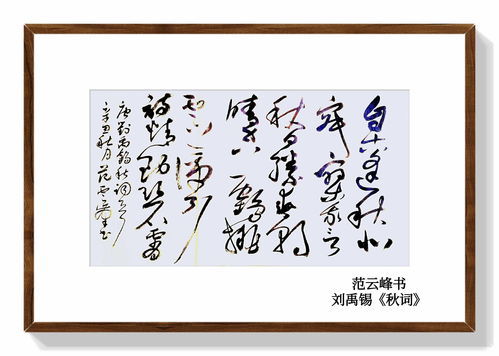 自古逢秋悲
寂寥我言
秋日胜春朝
晴空一鹤排
云上便引
诗情到碧霄
唐刘禹锡秋词
辛丑秋月范云峰书
范云峰书
刘禹锡《秋词》